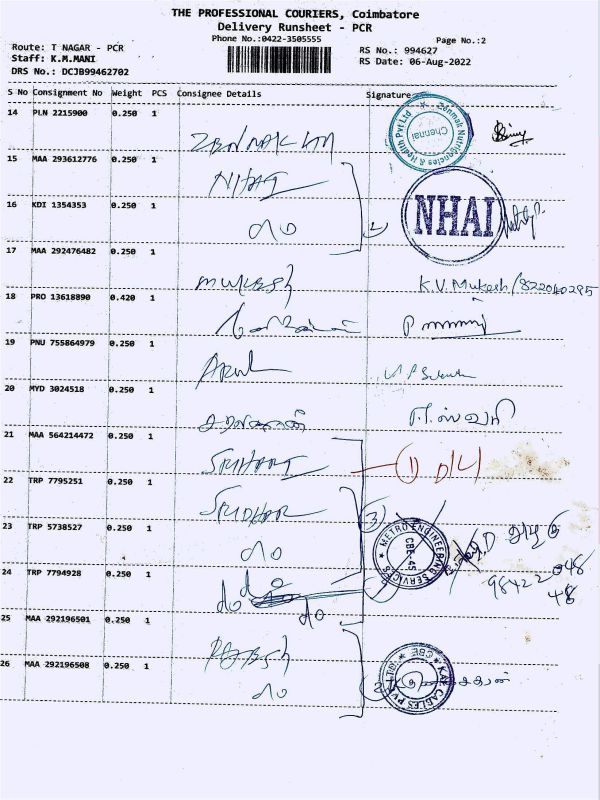 THE PROFESSIONAL COURIERS, Coimbatore
Delivery Runsheet - PCR
Phone No.:0422-3505555
Page No.:2
Route: T NAGAR - PCR
RS No.: 994627
Staff: K.M.MANI
RS Date: 06-Aug-2022
DRS No.: DCJB99462702
S No Consignment No Weight PCS Consignee Details Signature
14 PLN 2215900 0.250 1
Zenmak Nutrigincies & Health Pvt Ltd Chennai
15 MAA 293612776 0.250 1 NHAI
16 KDI 1354353 0.250 1 do 2 NHAI
17 MAA 292476482 0.250 1 mukesh K.V. Mukesh / 822040295
18 PRO 13618890 0.420 1
19 PNU 755864979 0.250 1 Arul
20 MYD 3024518 0.250 1
21 MAA 564214472 0.250 1 (1) D/L
22 TRP 7795251 0.250 1 SRIDHAR
23 TRP 5738527 0.250 1 do (3) METRO ENGINEERING SERVICES CBE-45
24 TRP 7794928 0.250 1 do do do 98422 048 48
25 MAA 292196501 0.250 1
26 MAA 292196508 0.250 1 do (2) KAP CABLES PVT LTD. CBE